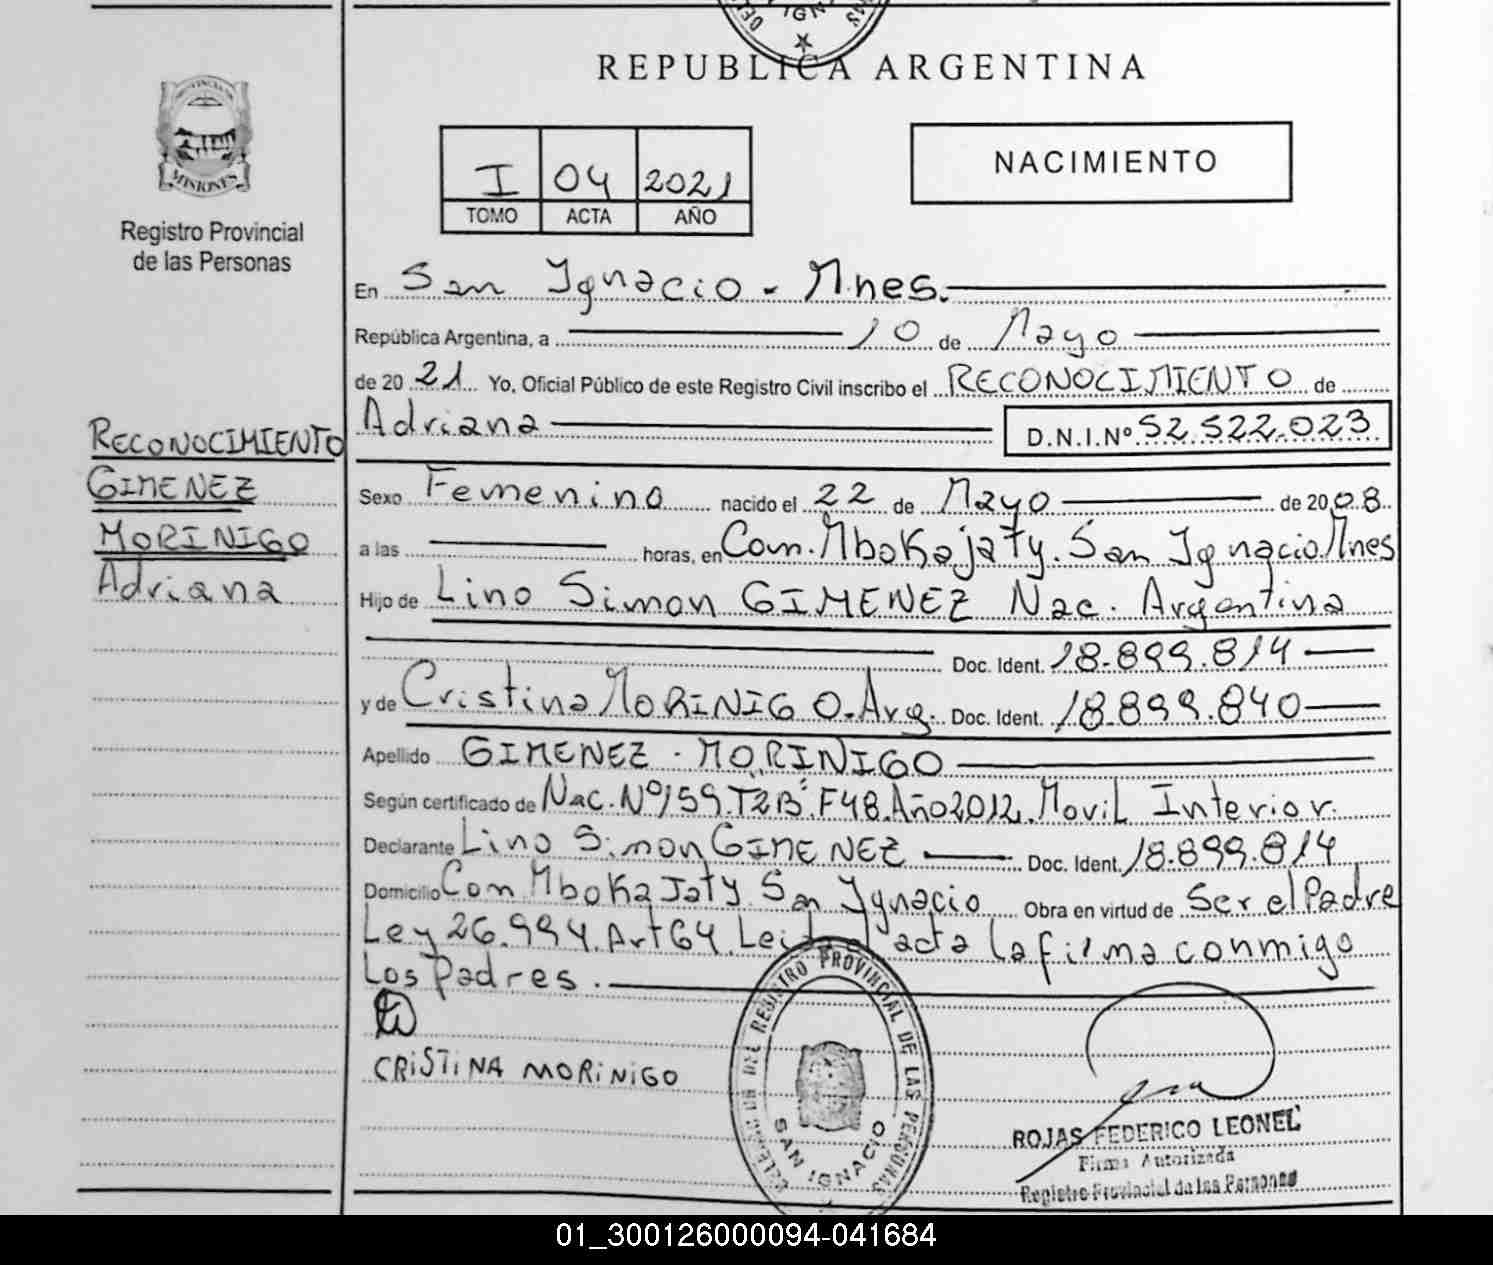 REPUBLICA ARGENTINA
PROVINCIA DE
MISIONES
Registro Provincial
de las Personas
I 04 2021
TOMO ACTA AÑO
NACIMIENTO
En San Ignacio - Mnes.
República Argentina, a 10 de Mayo
de 20 21 Yo, Oficial Público de este Registro Civil inscribo el RECONOCIMIENTO de
Adriana D.N.I.Nº 52.522.023
RECONOCIMIENTO
GIMENEZ
MORINIGO
Adriana
Sexo Femenino nacido el 22 de Mayo de 2008
a las horas, en Com. Mbokajaty. San Ignacio Mnes
Hijo de Lino Simon GIMENEZ Nac. Argentina
Doc. Ident. 18.899.814
y de Cristina MORINIGO. Arg. Doc. Ident. 18.899.840
Apellido GIMENEZ - MORINIGO
Según certificado de Nac. Nº 159. T2B. F48. Año 2012. Movil Interior.
Declarante Lino Simon GIMENEZ Doc. Ident. 18.899.814
Domicilio Com Mboka Jaty San Ignacio Obra en virtud de Ser el Padre
Ley 26.994. Art 64. acta la firma conmigo
Los padres.
CRISTINA MORINIGO
DEL REGISTRO PROVINCIAL DE LAS PERSONAS
SAN IGNACIO
ROJAS FEDERICO LEONEL
Firma Autorizada
Registro Provincial de las Personas
01_300126000094-041684